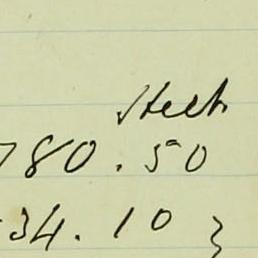 780.50
34.10